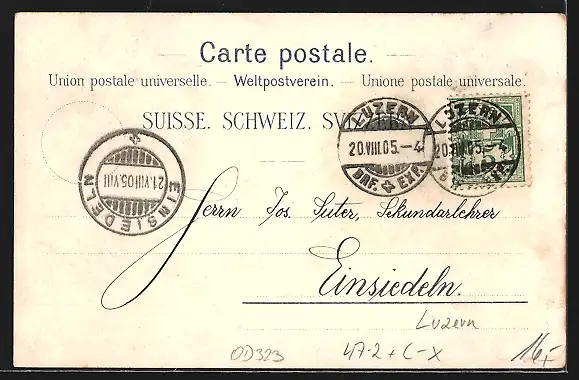 Carte postale.
Union postale universelle. – Weltpostverein. – Unione postale universale.
SUISSE. SCHWEIZ.
LUZERN
20.VIII.05.–4
BRF. EXP.
LUZERN
20.VIII.05.–4
5
EINSIEDELN
21.VIII.05.VIII
Herrn Jos. Suter, Sekundarlehrer
Einsiedeln.
Luzern
OD323
47-2 + C-X
16,-